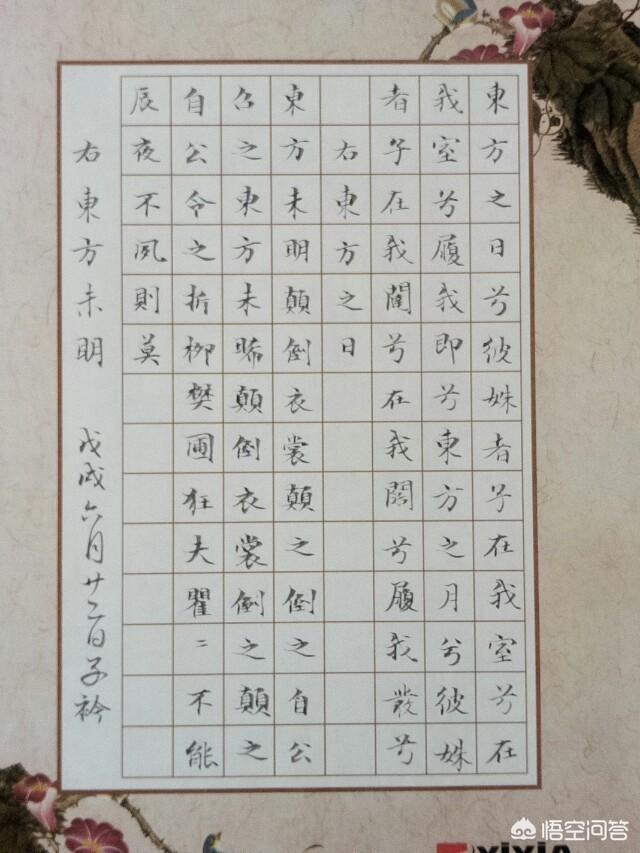 東方之日兮彼姝者子在我室兮在
我室兮履我即兮東方之月兮彼姝
者子在我闥兮在我闥兮履我發兮
右東方之日
東方未明顛倒衣裳顛之倒之自公
召之東方未晞顛倒衣裳倒之顛之
自公令之折柳樊圃狂夫瞿二不能
辰夜不夙則莫
右東方未明 戊戌六月廿二日子衿
悟空问答